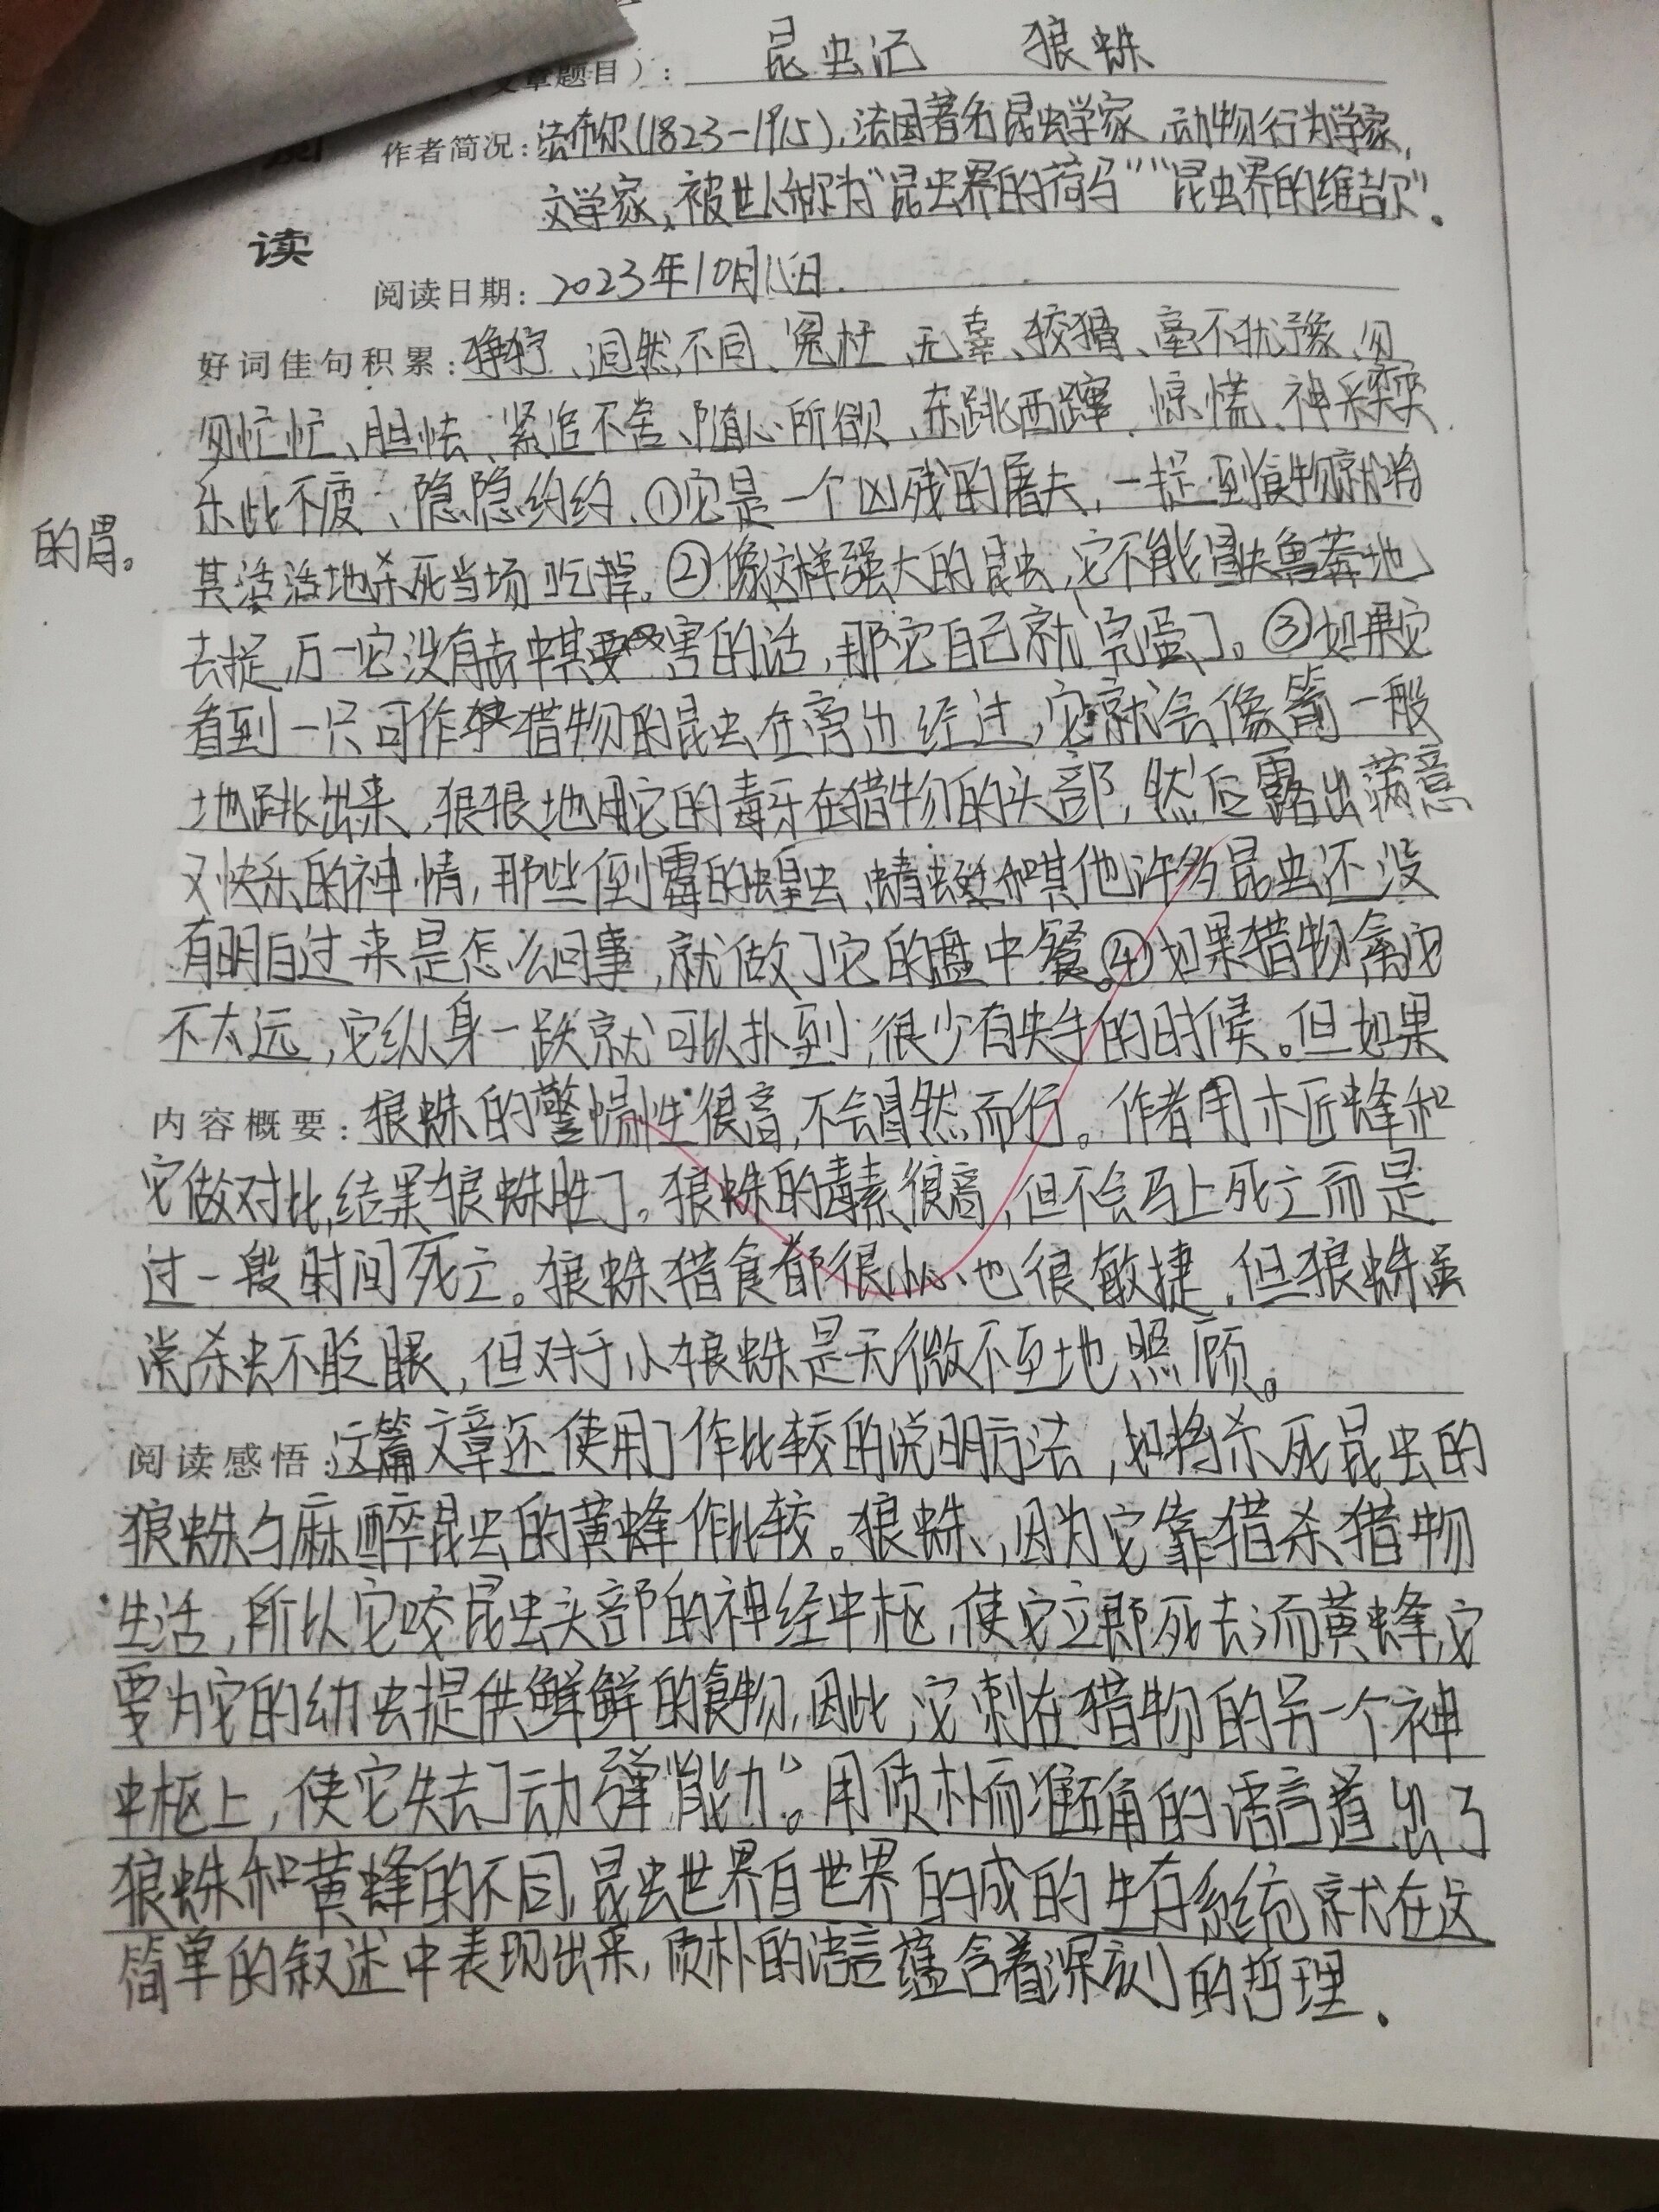 文章题目）：昆虫记 狼蛛
作者简况：法布尔(1823-1915),法国著名昆虫学家,动物行为学家,
文学家,被世人称为“昆虫界的荷马”“昆虫界的维吉尔”.
读
阅读日期：2023年10月 日.
好词佳句积累：狰狞、迥然不同、冤枉、无辜、狡猾、毫不犹豫、匆
匆忙忙、胆怯、紧追不舍、随心所欲、东跳西蹿、惊慌、神采奕奕
乐此不疲、隐隐约约、①它是一个凶残的屠夫,一捉到食物就将
的胃。
其活活地杀死当场吃掉。②像这样强大的昆虫,它不能冒失鲁莽地
去捉,万一它没有击中其要害的话,那它自己就完蛋了。③如果它
看到一只可作猎物的昆虫在旁边经过,它就会像箭一般
地跳出来,狠狠地用它的毒牙在猎物的头部,然后露出满意
又快乐的神情,那些倒霉的蝗虫、蜻蜓和其他许多昆虫还没
有明白过来是怎么回事,就做了它的盘中餐。④如果猎物离它
不太远,它纵身一跃就可以扑到,很少有失手的时候。但如果
内容概要：狼蛛的警惕性很高,不会冒然而行。作者用木匠蜂和
它做对比,结果狼蛛胜了。狼蛛的毒素很高,但不会马上死亡而是
过一段时间死亡。狼蛛猎食都很小心也很敏捷,但狼蛛虽
常杀虫不眨眼,但对于小狼蛛是无微不至地照顾。
阅读感悟：这篇文章还使用了作比较的说明方法,如将杀死昆虫的
狼蛛与麻醉昆虫的黄蜂作比较。狼蛛,因为它靠猎杀猎物
生活,所以它咬昆虫头部的神经中枢,使它立即死去;而黄蜂,它
要为它的幼虫提供鲜鲜的食物,因此,它刺在猎物的另一个神
中枢上,使它失去了动弹能力”。用质朴而准确的语言道出了
狼蛛和黄蜂的不同,昆虫世界自世界的成的生存系统就在这
简单的叙述中表现出来,质朴的语言蕴含着深刻的哲理.